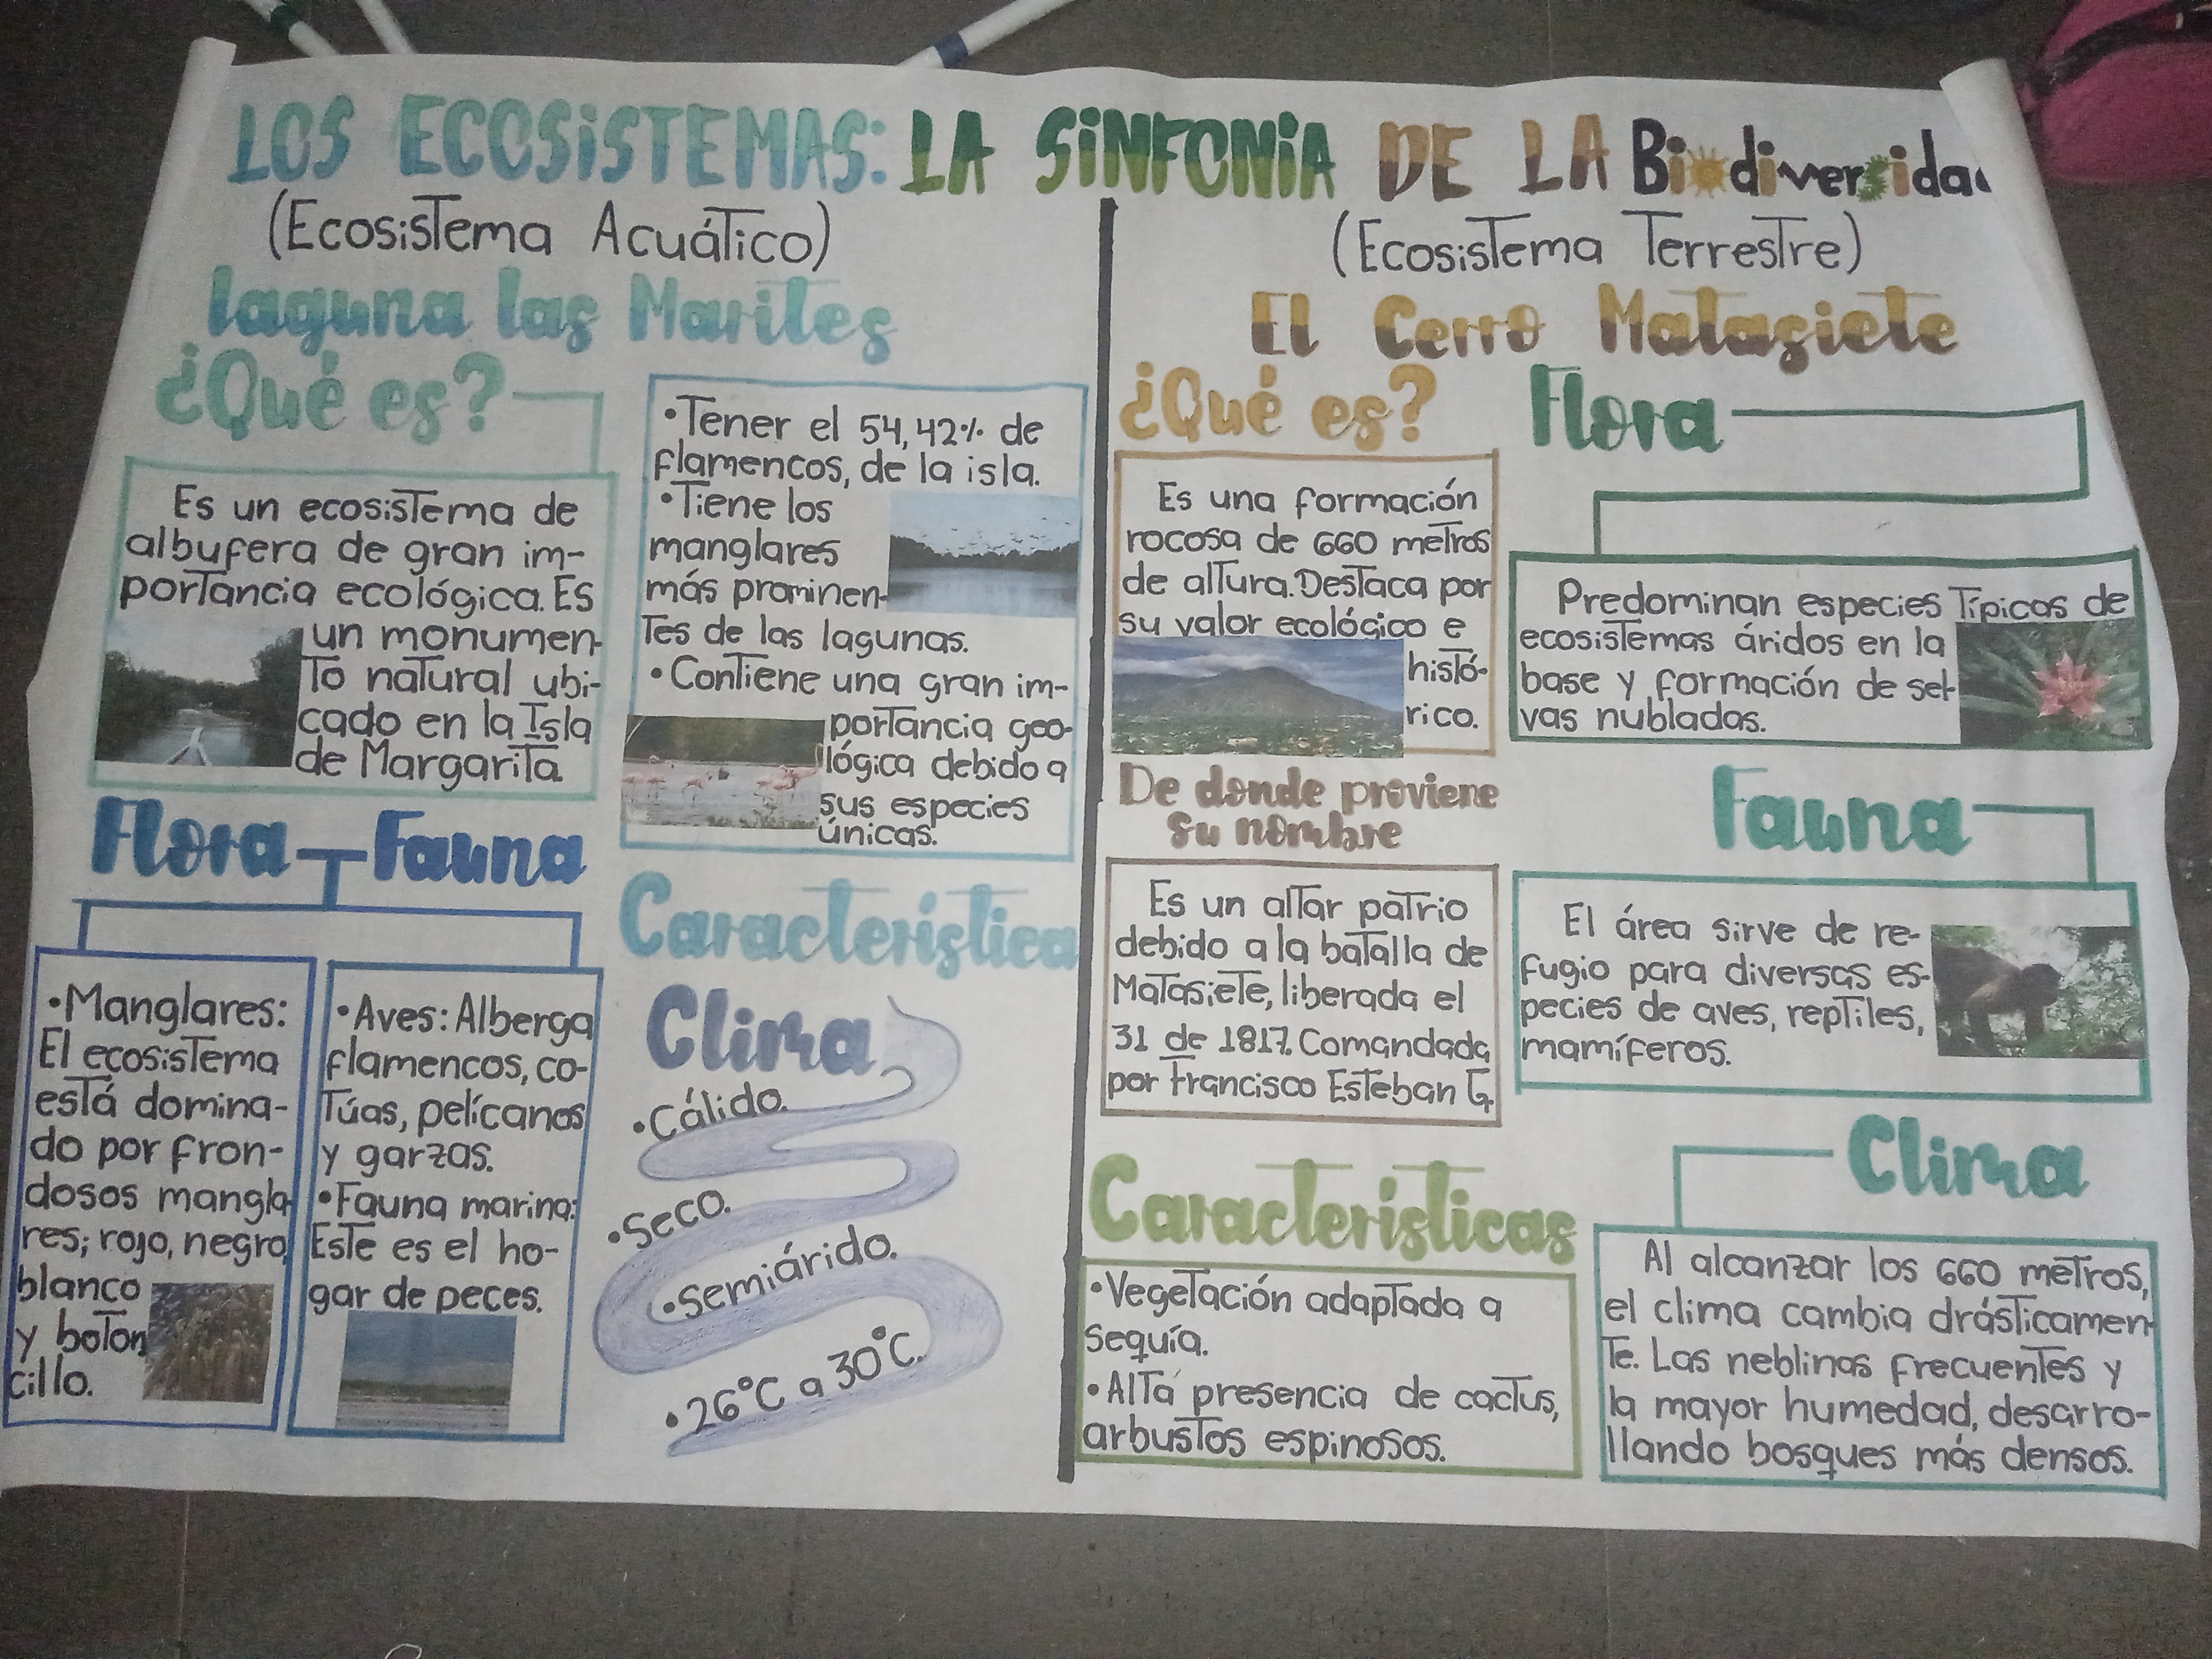 LOS ECOSISTEMAS: LA SINFONIA DE LA Biodiversidad
(Ecosistema Acuático)
laguna las Marites
¿Qué es?
Es un ecosistema de
albufera de gran im-
portancia ecológica. Es
un monumen-
to natural ubi-
cado en la Isla
de Margarita.
•Tener el 54,42% de
flamencos, de la isla.
•Tiene los
manglares
más prominen-
tes de las lagunas.
•Contiene una gran im-
portancia geo-
lógica debido a
sus especies
únicas.
Flora Fauna
•Manglares:
El ecosistema
está domina-
do por fron-
dosos mangla-
res; rojo, negro,
blanco
y boton
cillo.
•Aves: Alberga
flamencos, co-
túas, pelícanos
y garzas.
•Fauna marina:
Este es el ho-
gar de peces.
Característica
Clima
•Cálido.
•Seco.
•Semiárido.
•26°C a 30°C.
(Ecosistema Terrestre)
El Cerro Matasiete
¿Qué es?
Es una formación
rocosa de 660 metros
de altura. Destaca por
su valor ecológico e
histó-
rico.
De donde proviene
su nombre
Es un altar patrio
debido a la batalla de
Matasiete, liberada el
31 de 1817. Comandada
por Francisco Esteban G.
Características
•Vegetación adaptada a
sequía.
•Alta presencia de cactus,
arbustos espinosos.
Flora
Predominan especies típicas de
ecosistemas áridos en la
base y formación de sel-
vas nubladas.
Fauna
El área sirve de re-
fugio para diversas es-
pecies de aves, reptiles,
mamíferos.
Clima
Al alcanzar los 660 metros,
el clima cambia drásticamen-
te. Las neblinas frecuentes y
la mayor humedad, desarro-
llando bosques más densos.